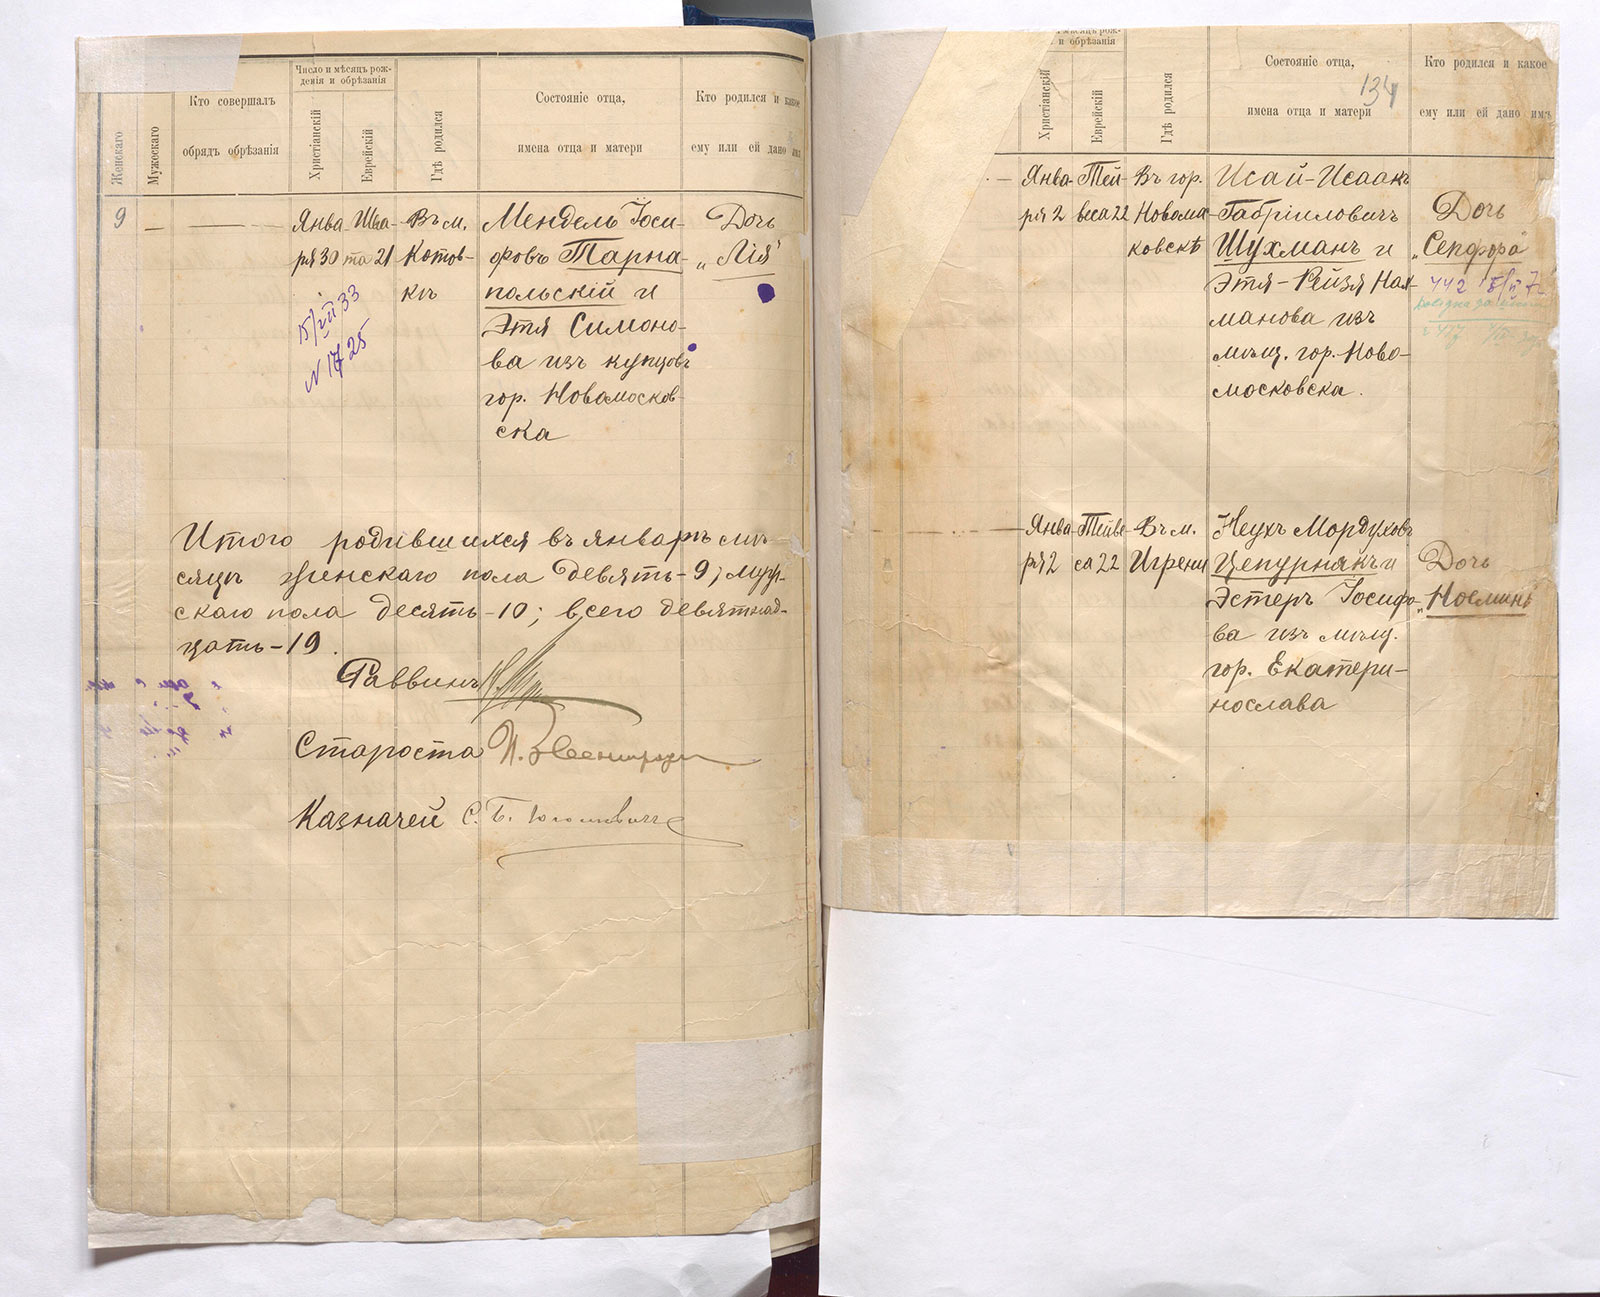 Женскаго
Мужескаго
Кто совершалъ
обрядъ обрѣзанія
Число и мѣсяцъ рож-
денія и обрѣзанія
Христіанскій
Еврейскій
Гдѣ родился
Состояніе отца,
имена отца и матери
Кто родился и какое
ему или ей дано имя
9
Янва-
ря 30
Шва-
та 21
Въ м.
Котов-
кѣ
Мендель Іоси-
фовъ Тарна-
польскій и
Этя Симоно-
ва изъ купцовъ
гор. Новомосков
ска
Дочь
„Лія"
15/VII 33
N 1725
Итого родившихся въ январѣ мѣ-
сяцѣ женскаго пола девять-9; муж-
скаго пола десять-10; всего девятнад-
цать-19.
Раввинъ
Староста
Казначей С. Б.
и обрѣзанія
Христіанскій
Еврейскій
Гдѣ родился
Состояніе отца,
имена отца и матери
134
Кто родился и какое
ему или ей дано имя
Янва-
ря 2
Тей-
веса 22
Въ гор.
Новомо-
сковскѣ
Исай-Исаакъ
Габріиловичъ
Шухманъ и
Этя-Рейзя Нах-
манова изъ
мѣщ. гор. Ново-
московска.
Дочь
„Сепфора"
442
Янва-
ря 2
Тейве-
са 22
Въ м.
Игрени
Неухъ Мордуховъ
Цепурнякъ и
Эстеръ Іосифо-
ва изъ мѣщ.
гор. Екатери-
нослава
Дочь
„Ноеминь"